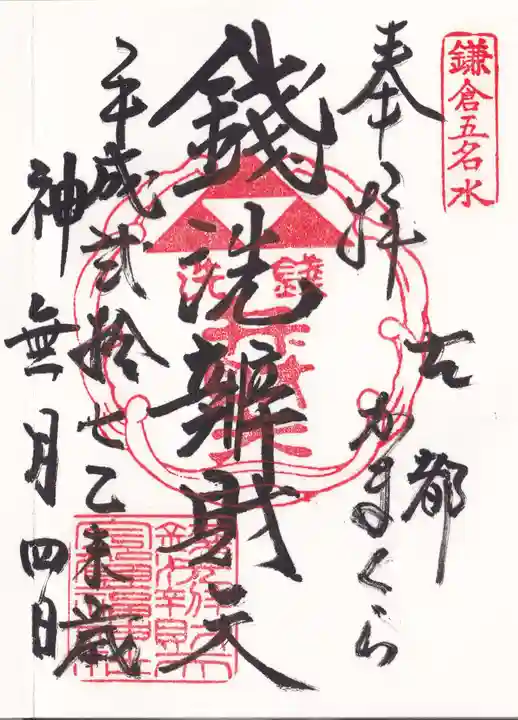 鎌倉五名水
奉拜
古都
かまくら
錢洗辨財天
錢洗
平成弐拾七乙未歳
神無月四日